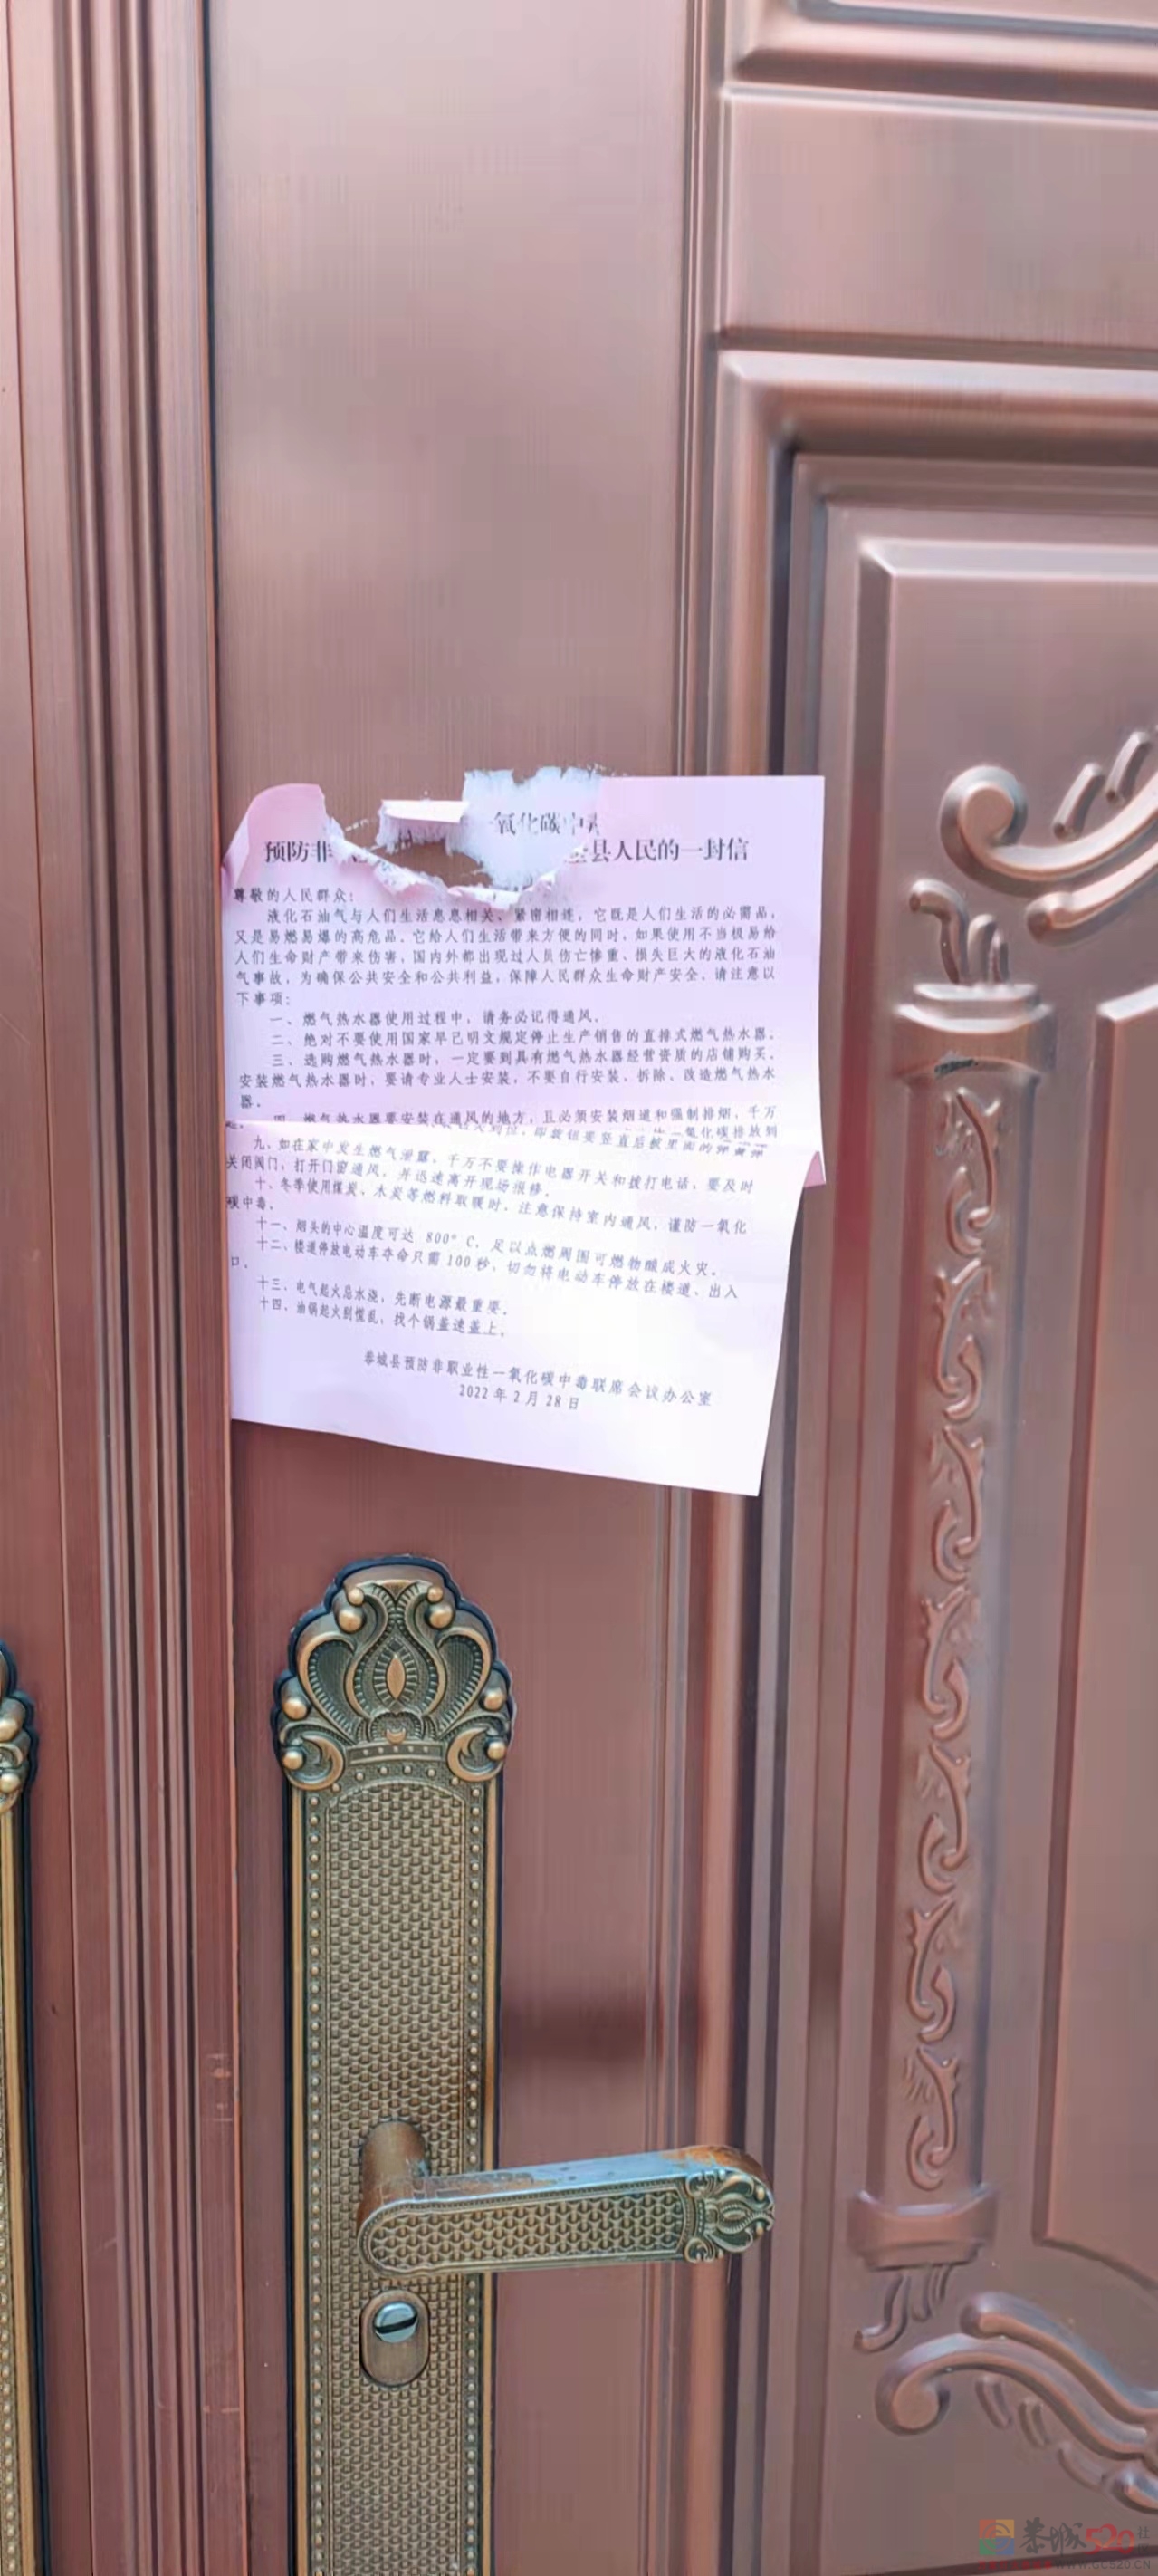 一氧化碳中
预防非 县人民的一封信
尊敬的人民群众：
液化石油气与人们生活息息相关、紧密相连，它既是人们生活的必需品，
又是易燃易爆的高危品。它给人们生活带来方便的同时，如果使用不当极易给
人们生命财产带来伤害，国内外都出现过人员伤亡惨重、损失巨大的液化石油
气事故，为确保公共安全和公共利益，保障人民群众生命财产安全，请注意以
下事项：
一、燃气热水器使用过程中，请务必记得通风。
二、绝对不要使用国家早已明文规定停止生产销售的直排式燃气热水器。
三、选购燃气热水器时，一定要到具有燃气热水器经营资质的店铺购买。
安装燃气热水器时，要请专业人士安装，不要自行安装、拆除、改造燃气热水
器。
四、燃气热水器要安装在通风的地方，且必须安装烟道和强制排烟，千万
一氧化碳排放到
即旋钮要竖直后被里面的弹簧弹
九、如在家中发生燃气泄露，千万不要操作电器开关和拨打电话，要及时
关闭阀门，打开门窗通风，并迅速离开现场报修。
十、冬季使用煤炭、木炭等燃料取暖时，注意保持室内通风，谨防一氧化
碳中毒。
十一、烟头的中心温度可达 800° C，足以点燃周围可燃物酿成火灾。
十二、楼道停放电动车夺命只需 100 秒，切勿将电动车停放在楼道、出入
口。
十三、电气起火忌水浇，先断电源最重要。
十四、油锅起火别慌乱，找个锅盖速盖上。
恭城县预防非职业性一氧化碳中毒联席会议办公室
2022 年 2 月 28 日
恭城520社
WWW.GC520.CN